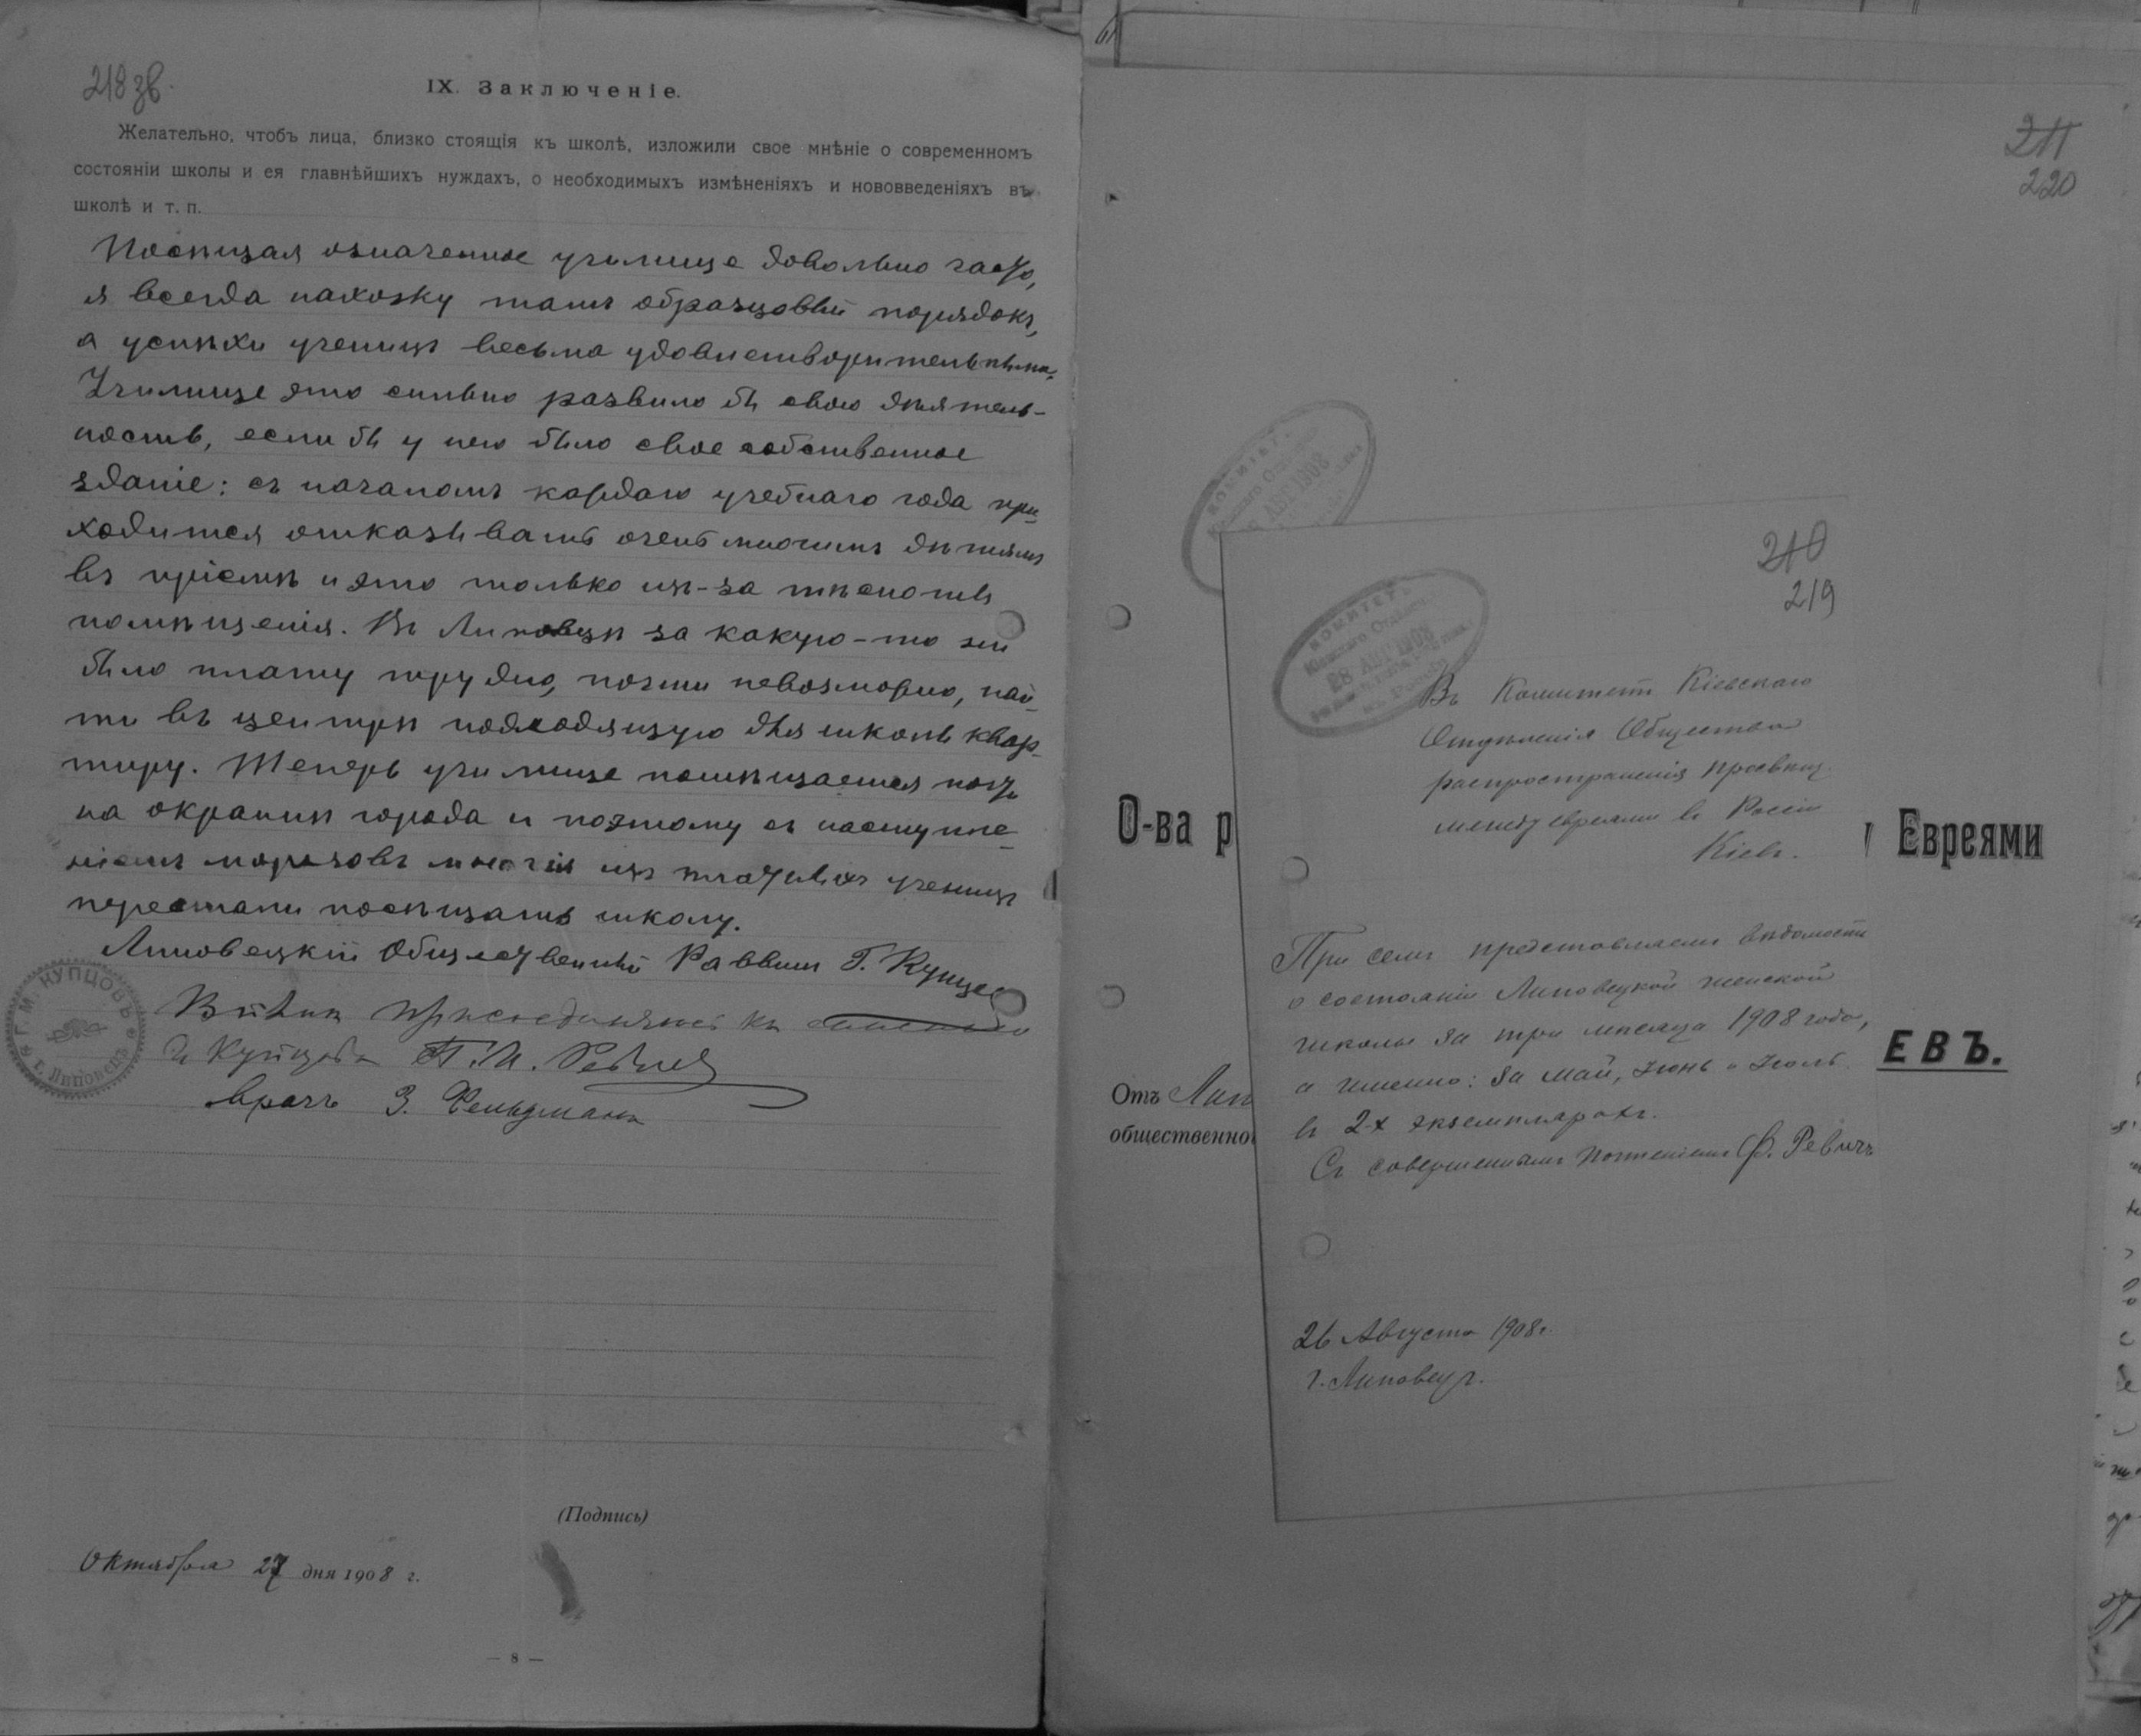 218 зв.
IX. Заключеніе.
Желательно, чтобъ лица, близко стоящія къ школѣ, изложили свое мнѣніе о современномъ
состояніи школы и ея главнѣйшихъ нуждахъ, о необходимыхъ измѣненіяхъ и нововведеніяхъ въ
школѣ и т. п.
Посѣщая означенное училище довольно часто,
я всегда нахожу тамъ образцовый порядокъ,
а успѣхи ученицъ весьма удовлетворительными.
Училище это сильно развило бы свою дѣятель-
ность, если бы у него было свое собственное
зданіе: съ началомъ каждаго учебнаго года при-
ходится отказывать очень многимъ дѣтямъ
въ пріемѣ и это только изъ-за тѣсноты
помѣщенія. Въ Липовцѣ за какую-то ни
было плату трудно, почти невозможно, най-
ти въ центрѣ подходящую для школы квар-
тиру. Теперь училище помѣщается почти
на окраинѣ города и поэтому съ наступле-
ніемъ морозовъ многія изъ ученицъ
перестали посѣщать школу.
Липовецкій Общественный Раввинъ Г. Купцов
Вполнѣ присоединяюсь къ
Г. Купцова
Врачъ З. Фельдманъ
Г. М. КУПЦОВЪ
г. Липовецъ
(Подпись)
Октября 27 дня 1908 г.
— 8 —
211
220
КОМИТЕТ
О-ва р
Евреями
ЕВЪ.
Отъ Лип
общественно
210
219
КОМИТЕТ
Кіевскаго Отдѣл
28 АВГ 1908
Въ Комитетъ Кіевскаго
Отдѣленія Общества
распространенія просвѣщ.
между евреями въ Россіи
Кіевъ.
При семъ представляемъ вѣдомости
о состояніи Липовецкой женской
школы за три мѣсяца 1908 года,
а именно: за Май, Іюнь и Іюль.
въ 2-х экземплярахъ.
Съ совершеннымъ почтеніемъ Ф. Ревичъ
26 Августа 1908 г.
г. Липовецъ.